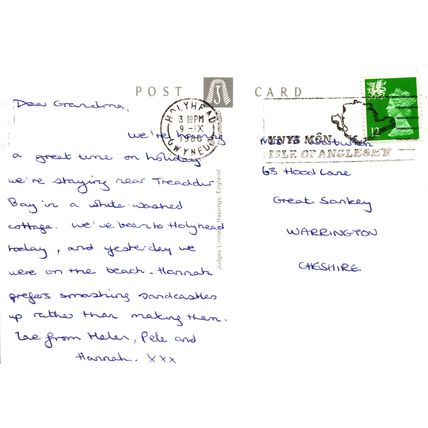 POST CARD
Dear Grandma,
We're having
a great time on holiday
we're staying near Treaddur
Bay in a white-washed
cottage. We've been to Holyhead
today, and yesterday we
were on the beach - Hannah
prefers smashing sandcastles
up rather than making them.
from Helen, Pete and
Hannah. xxx
Judges Limited, Hastings, England
HOLYHEAD
3 PM
9 IX
1986
GWYNEDD
YNYS MÔN
ISLE OF ANGLESEY
12
Mrs
63 Hood Lane
Great Sankey
WARRINGTON
CHESHIRE